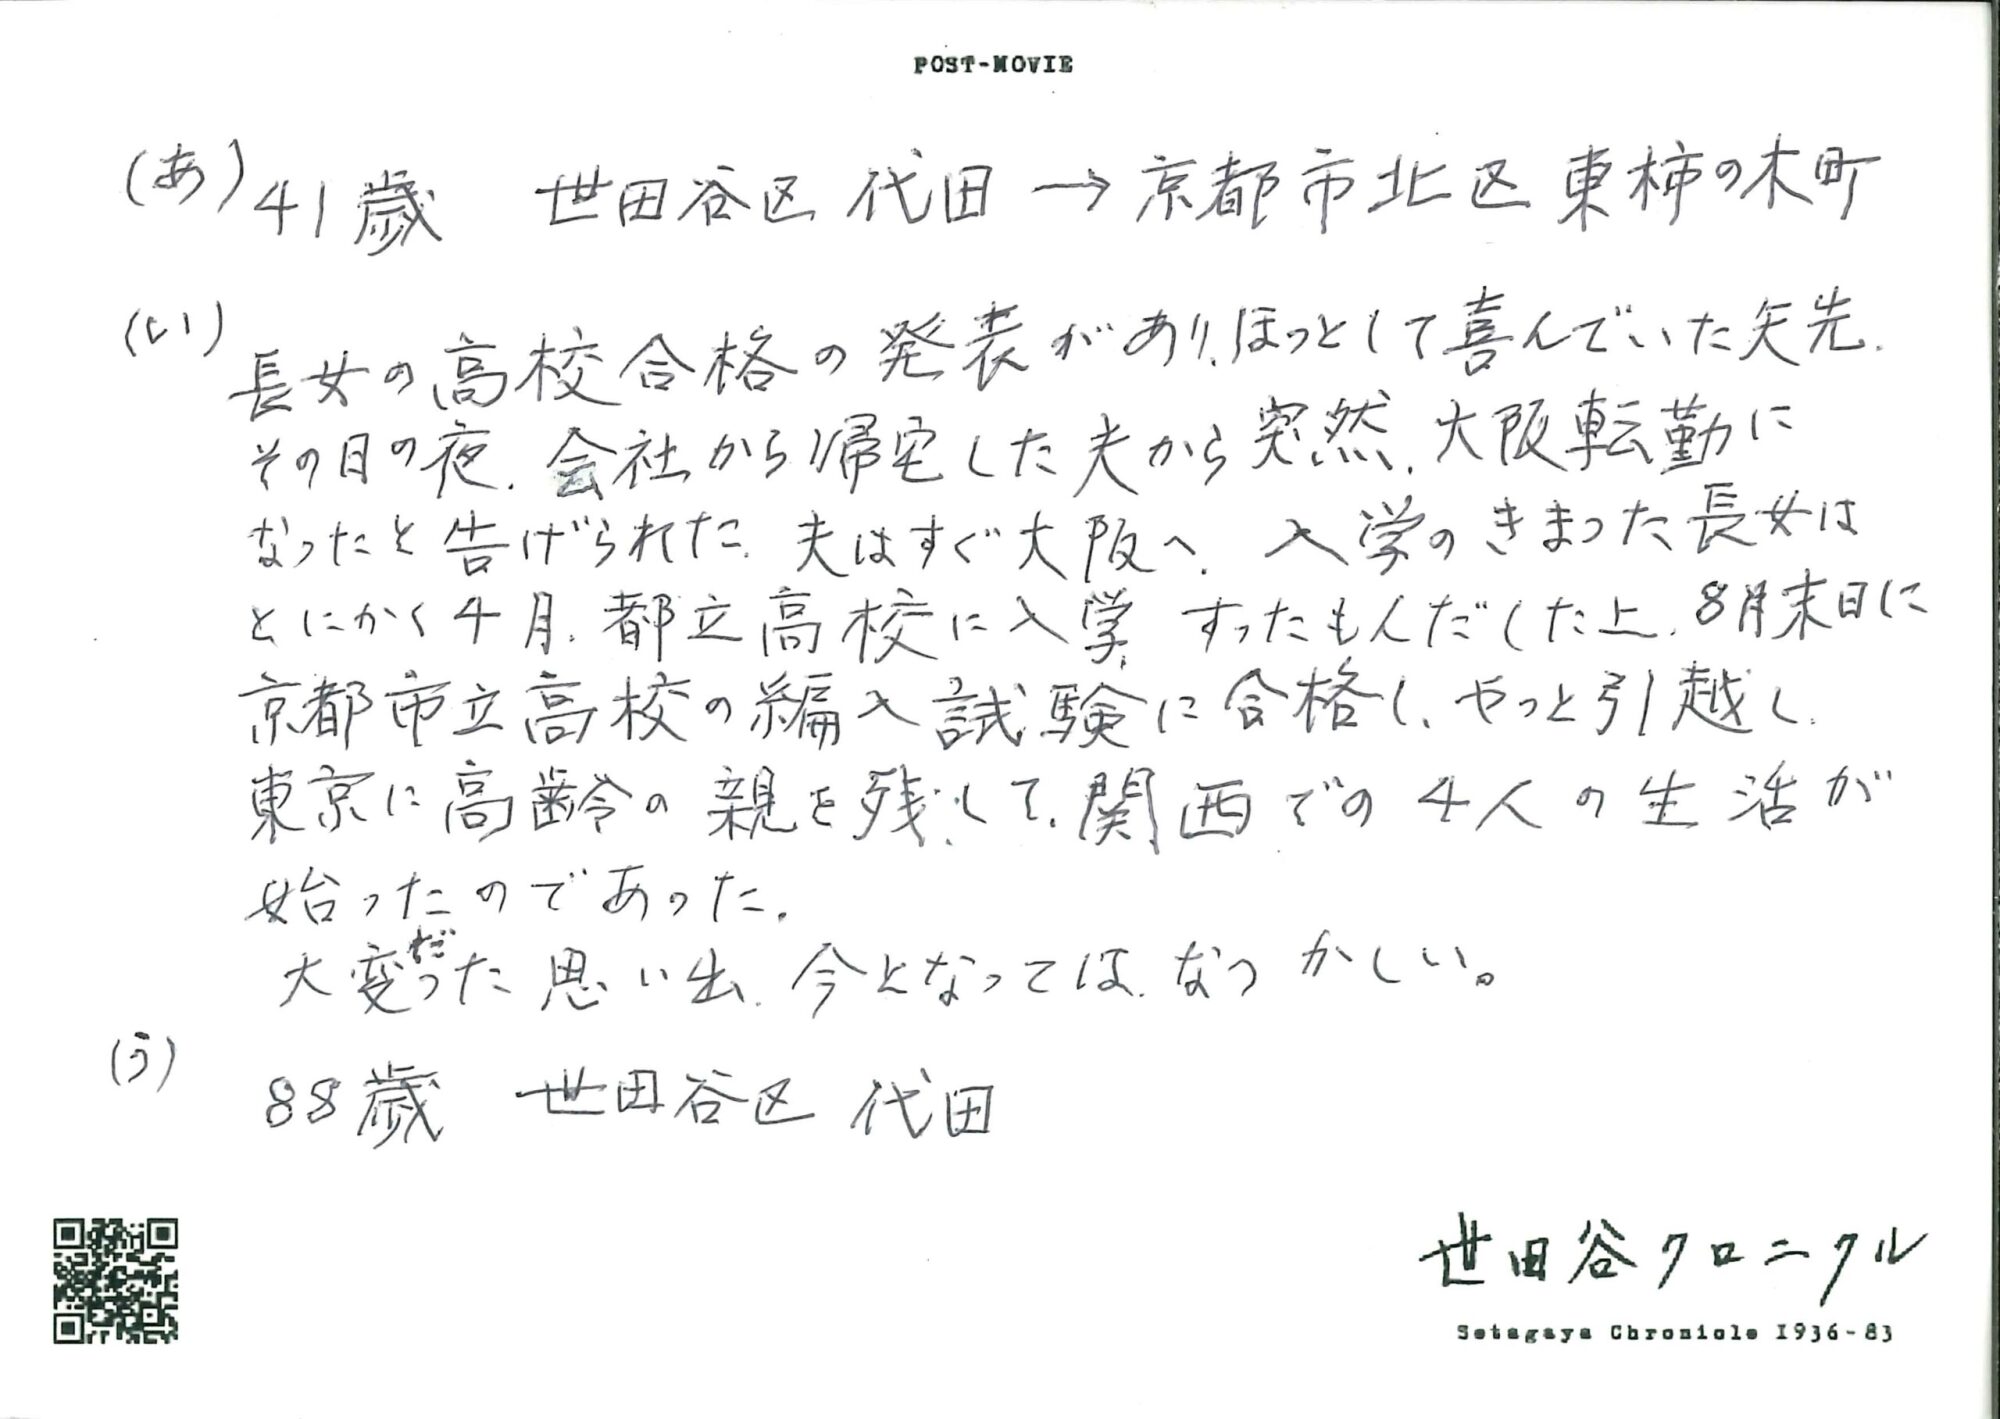 POST-MOVIE
(あ) 41歳 世田谷区 代田→京都市北区東柿の木町
(い)
長女の高校合格の発表があり、ほっとして喜んでいた矢先、
その日の夜、会社から帰宅した夫から突然、大阪転勤に
なったと告げられた。夫はすぐ大阪へ、入学のきまった長女は
とにかく4月、都立高校に入学、すったもんだした上、8月末日に
京都市立高校の編入試験に合格し、やっと引越し、
東京に高齢の親を残して、関西での4人の生活が
始ったのであった。
大変だった思い出、今となっては、なつかしい。
(う)
88歳 世田谷区 代田
世田谷クロニクル
Setagaya Chronicle 1936-83